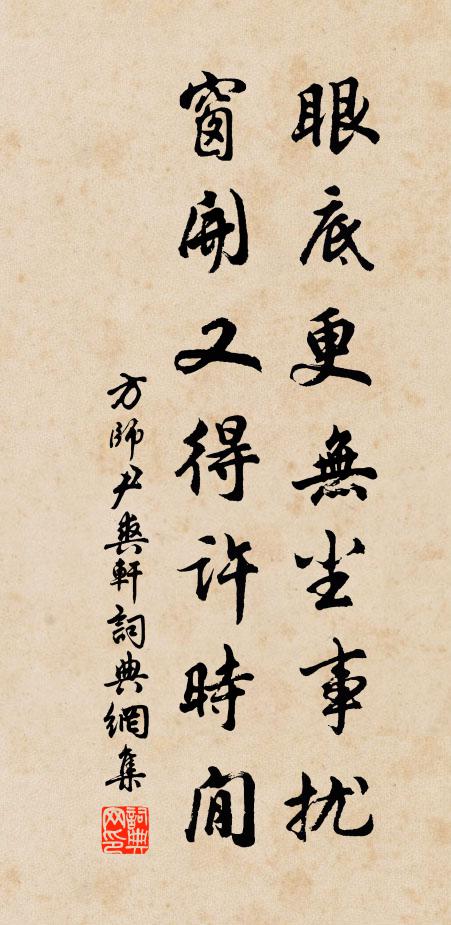 眼底更無尘事扰
窗開又得許時閒
方師尹爽軒詞典網集
詞典网印